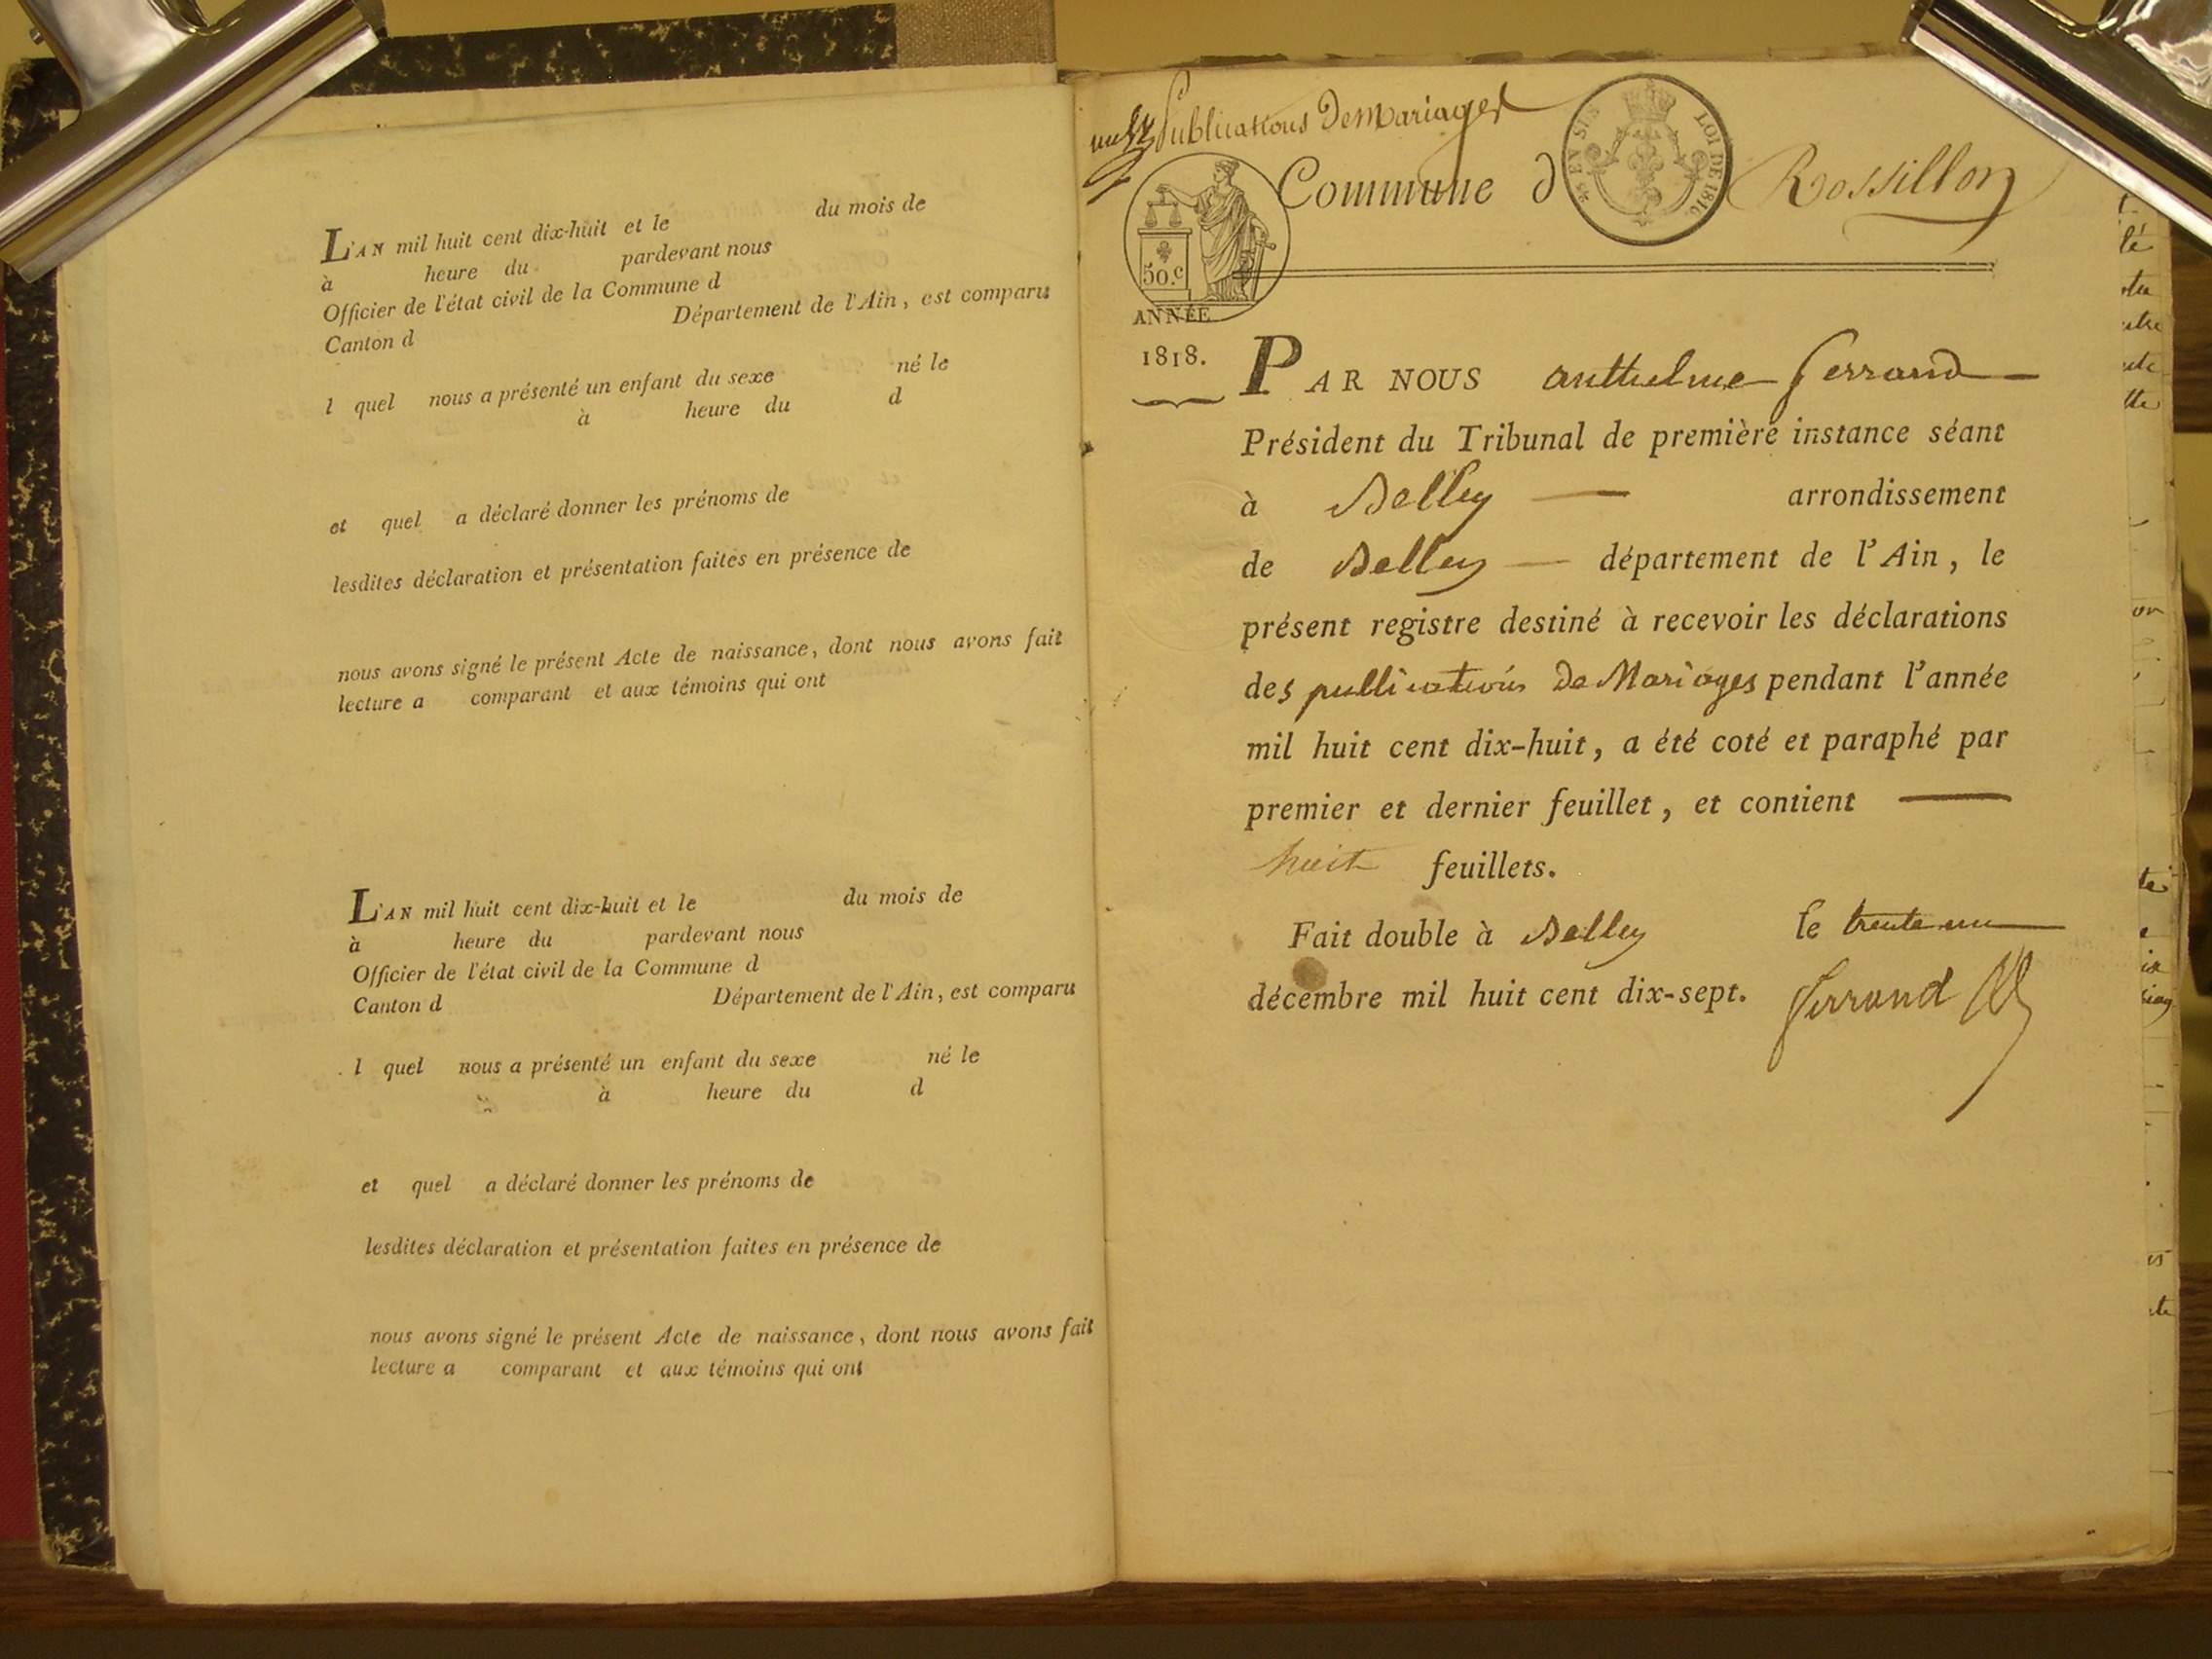 L'AN mil huit cent dix-huit et le du mois de
à heure du pardevant nous
Officier de l'état civil de la Commune d
Canton d Département de l'Ain, est comparu
l quel nous a présenté un enfant du sexe né le
à heure du d
et quel a déclaré donner les prénoms de
lesdites déclaration et présentation faites en présence de
nous avons signé le présent Acte de naissance, dont nous avons fait
lecture a comparant et aux témoins qui ont
L'AN mil huit cent dix-huit et le du mois de
à heure du pardevant nous
Officier de l'état civil de la Commune d
Canton d Département de l'Ain, est comparu
l quel nous a présenté un enfant du sexe né le
à heure du d
et quel a déclaré donner les prénoms de
lesdites déclaration et présentation faites en présence de
nous avons signé le présent Acte de naissance, dont nous avons fait
lecture a comparant et aux témoins qui ont
Publications De Mariages
Commune d Rossillon
LOI DE 1816
50.c
ANNÉE
1818.
PAR NOUS anthelme ferrand
Président du Tribunal de première instance séant
à Belley arrondissement
de Belley département de l'Ain, le
présent registre destiné à recevoir les déclarations
des publications De Mariages pendant l'année
mil huit cent dix-huit, a été coté et paraphé par
premier et dernier feuillet, et contient
huit feuillets.
Fait double à Belley le trente un
décembre mil huit cent dix-sept. ferrand